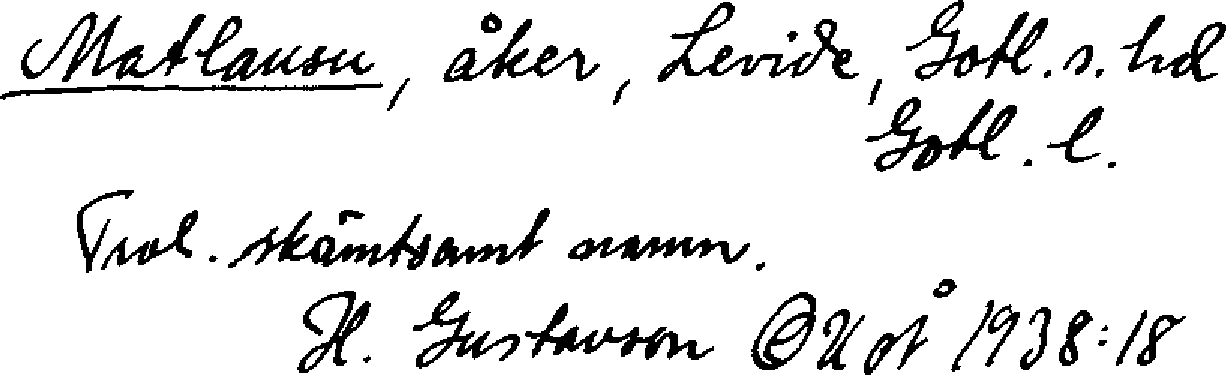 Matlausu, åker, Levide, Gotl. s. hd
Gotl. l.
Trol. skämtsamt namn.
H. Gustavson OUoÅ 1938:18